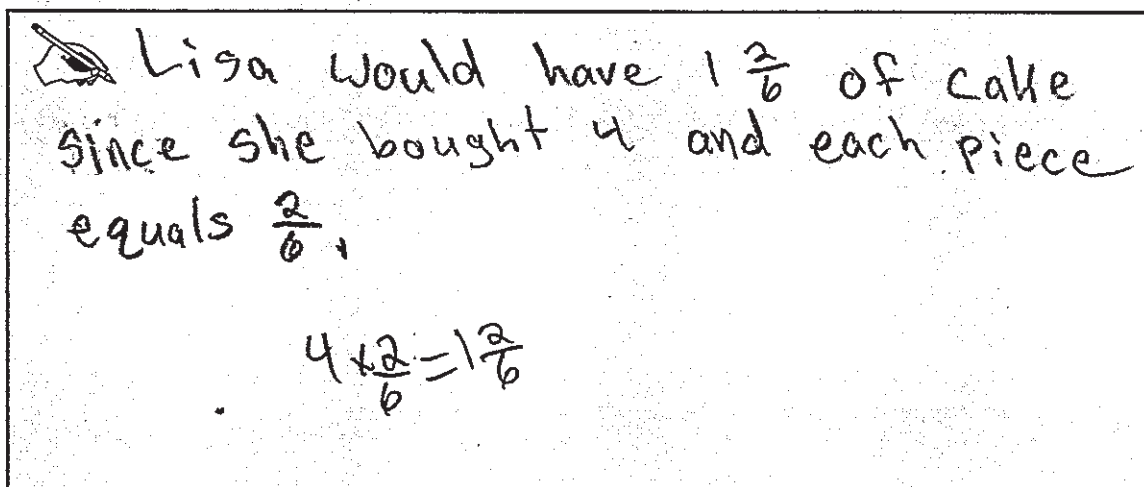 Lisa would have 1 2/6 of cake
since she bought 4 and each piece
equals 2/6.
4 x 2/6 = 1 2/6